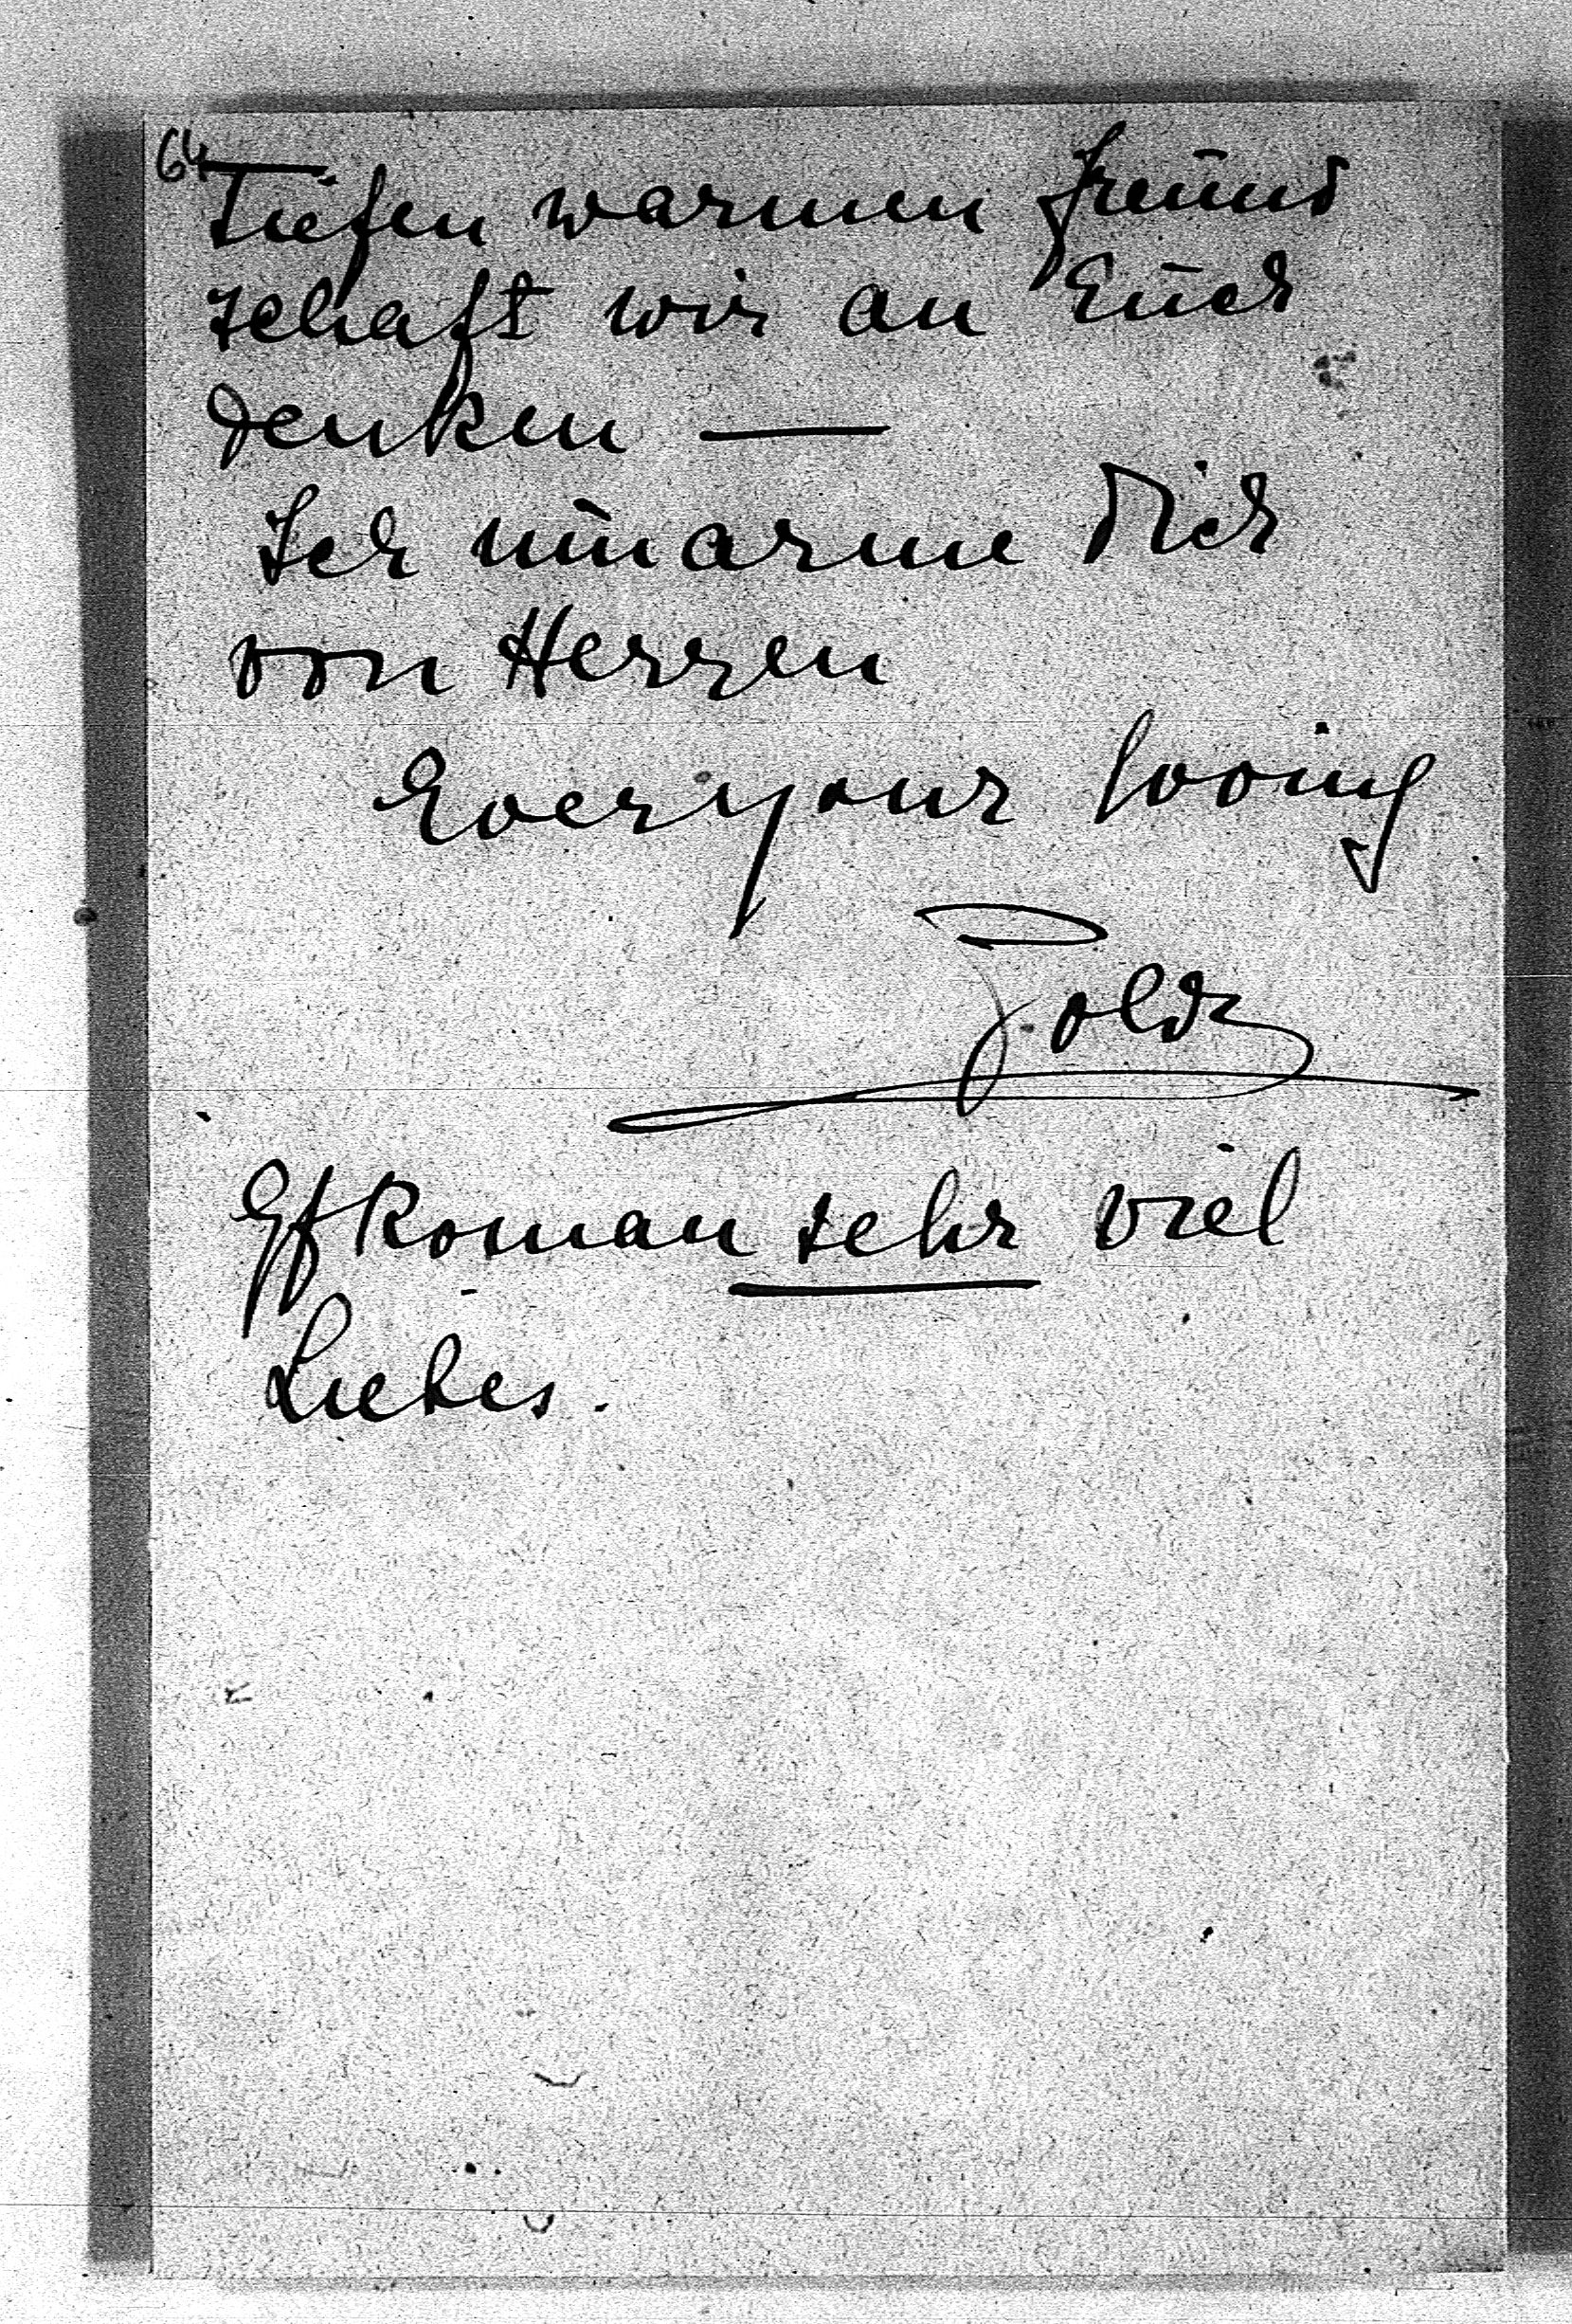 64
Tiefen warmen Freund
schaft wir an Euch
denken —
Ich umarme Dich
von Herzen
Ever your loving
Poldy
Roman sehr viel
Liebes.